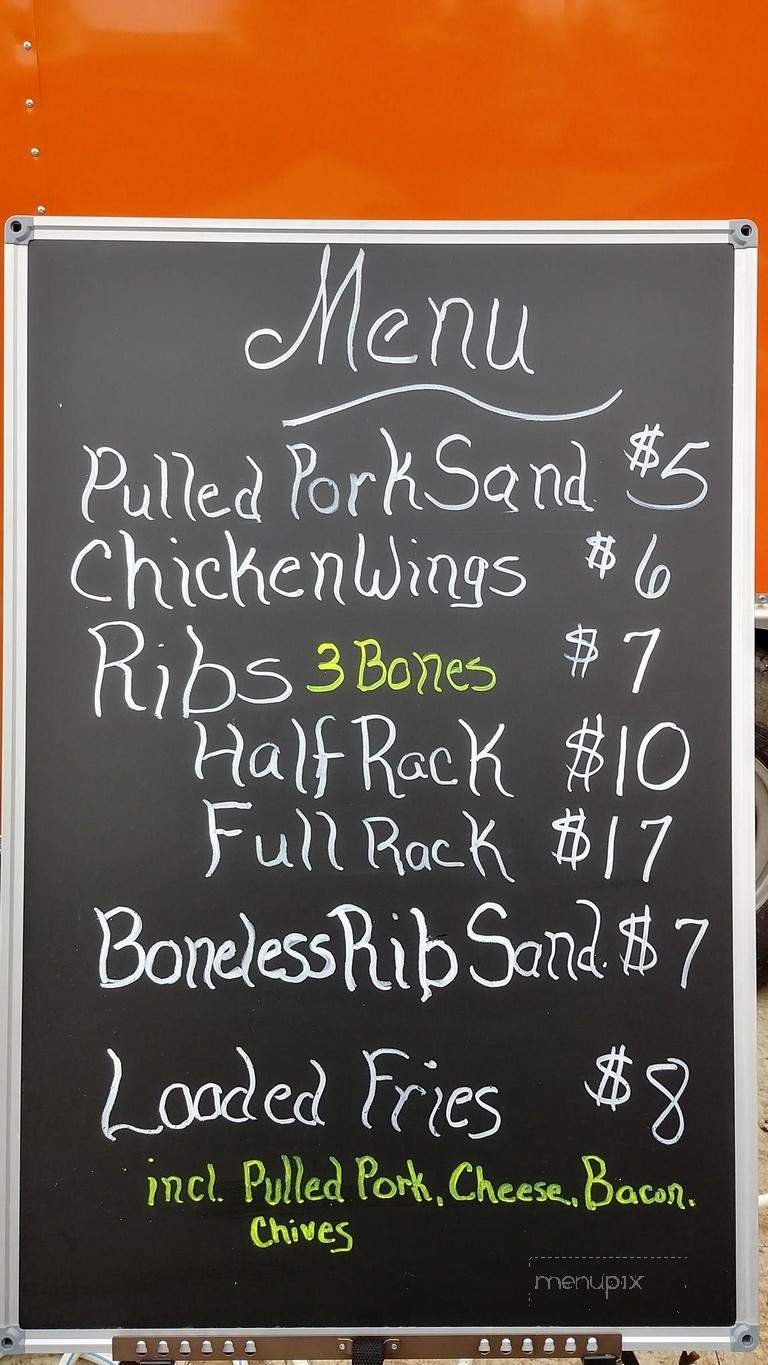 Menu
Pulled Pork Sand. $5
Chicken Wings $6
Ribs 3 Bones $7
Half Rack $10
Full Rack $17
Boneless Rib Sand. $7
Loaded Fries $8
incl. Pulled Pork, Cheese, Bacon,
Chives
menupix